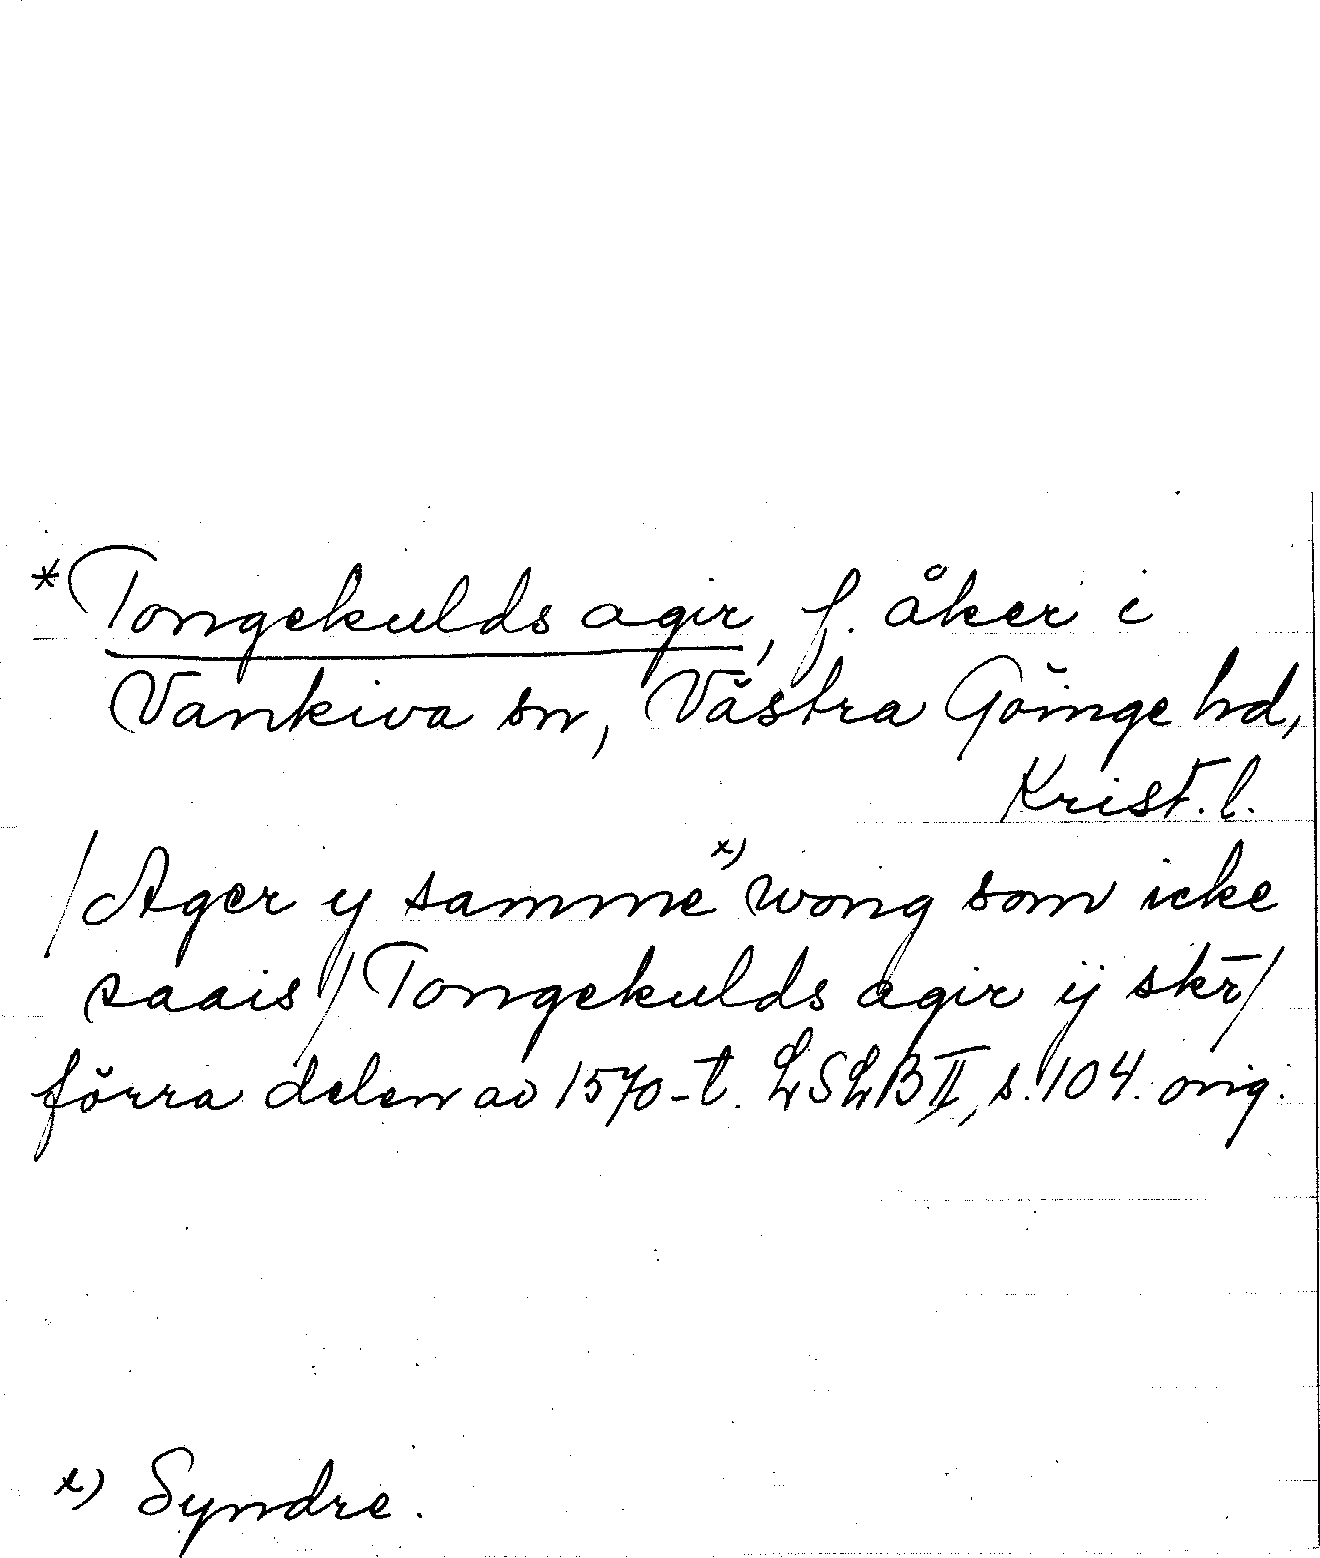 *Tongekulds agir, f. åker i
Vankiva sn, Västra Göinge hd,
Krist. l.
/Ager y samme x) wong som icke
saais/ Tongekulds agir ij skr̄/
förra delen av 1570-t. LSLB II, s. 104. orig.
x) Syndre.